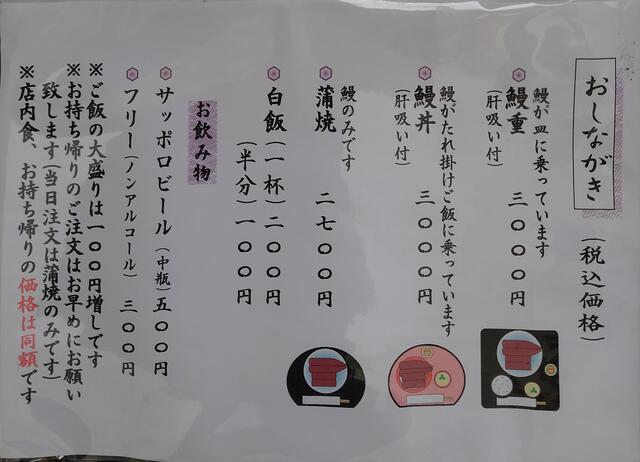 おしながき
(税込価格)
鰻が皿に乗っています
鰻重 三〇〇〇円
(肝吸い付)
鰻がたれ掛けご飯に乗っています
鰻丼 三〇〇〇円
(肝吸い付)
鰻のみです
蒲焼 二七〇〇円
白飯(一杯)二〇〇円
(半分)一〇〇円
お飲み物
サッポロビール(中瓶)五〇〇円
フリー(ノンアルコール) 三〇〇円
※ご飯の大盛りは一〇〇円増しです
※お持ち帰りのご注文はお早めにお願い
致します(当日注文は蒲焼のみです)
※店内食、お持ち帰りの価格は同額です